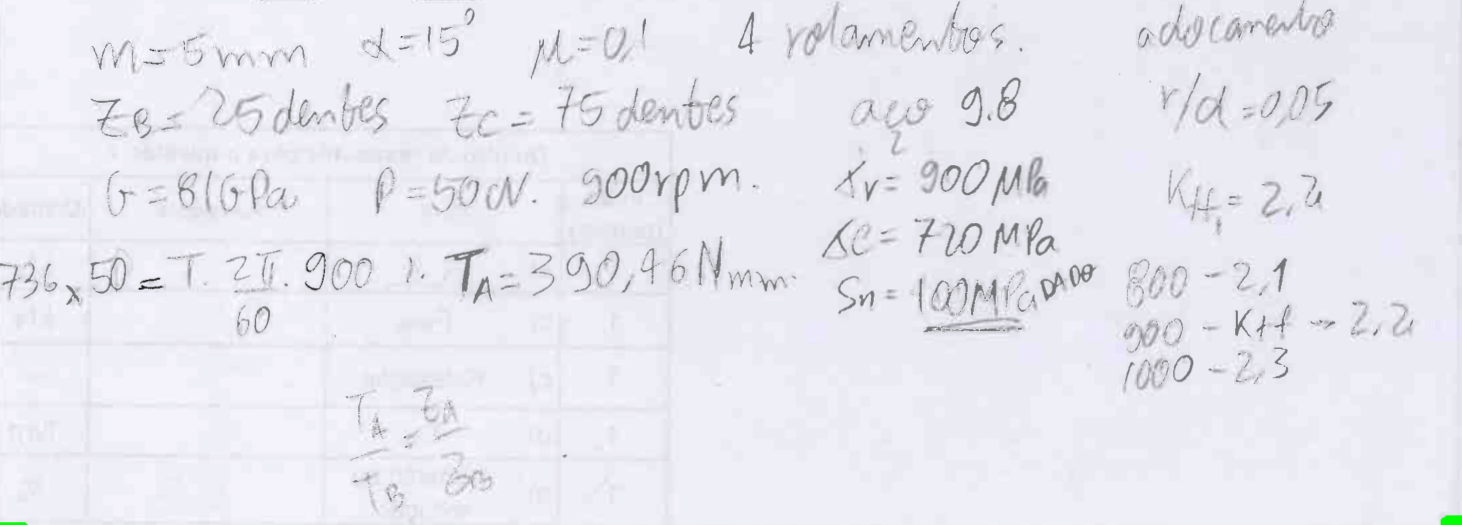 m=5mm α=15° μ=0,1 4 rolamentos. adoçamento
ZB=25 dentes ZC=75 dentes aço 9.8 r/d=0,05
G=81GPa P=50cv. 900rpm. σr=900MPa Ktf,=2,2
736x50=T.2π/60.900 ∴ TA=390,46Nmm. σe=720MPa
Sn=100MPa DADO 800-2,1
900-Ktf-2,2
1000-2,3
TA/TB=ZA/ZB